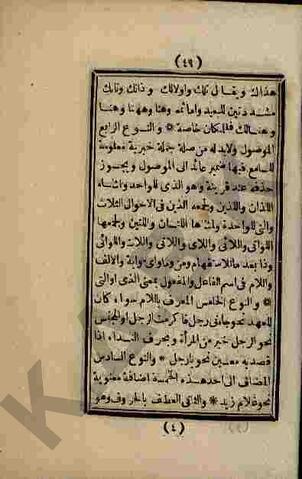 (٤٩)
هذالك ويقال تلك واولالك وذانك وتانك
مشددتين للبعيد واما ثمه وهنا وههنا وهنا
وهنالك فللمكان خاصة * والنوع الرابع
الموصول ولابد له من صلة جملة خبرية معلومة
للسامع فيها ضمير عائد الى الموصول ويجوز
حذفه عند قرينة وهو الذى للواحد ولمثناه
اللذان واللذين ولجمعه الذين فى الاحوال الثلاث
والتى للواحدة ولمثناها اللتان واللتين ولجمعها
اللواتى واللائى واللاى واللاتى واللات واللوائى
وذا بعد ما للاستفهام ومن وما واى واية والالف
واللام فى اسم الفاعل والمفعول بمعنى الذى او التى
* والنوع الخامس المعرف باللام سواء كان
للعهد نحو جاءنى رجل فاكرمت الرجل او للجنس
نحو الرجل خير من المرأة وبحرف النداء اذا
قصد به معين نحو يا رجل * والنوع السادس
المضاف الى احد هذه الخمسة اضافة معنوية
نحو غلام زيد * والثانى العطف بالحروف وهو
(٤)